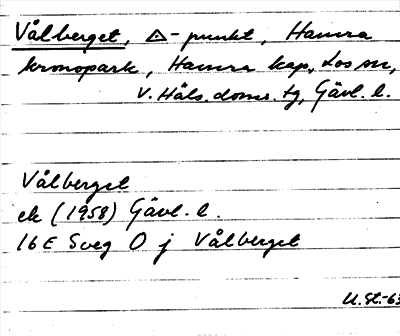 Vålberget, △-punkt, Hamra
kronopark, Hamra kap., Los sn,
V. Häls. doms. tg, Gävl. l.
Vålberget
ek (1958) Gävl. l.
16E Sveg O j Vålberget
U.St.-63